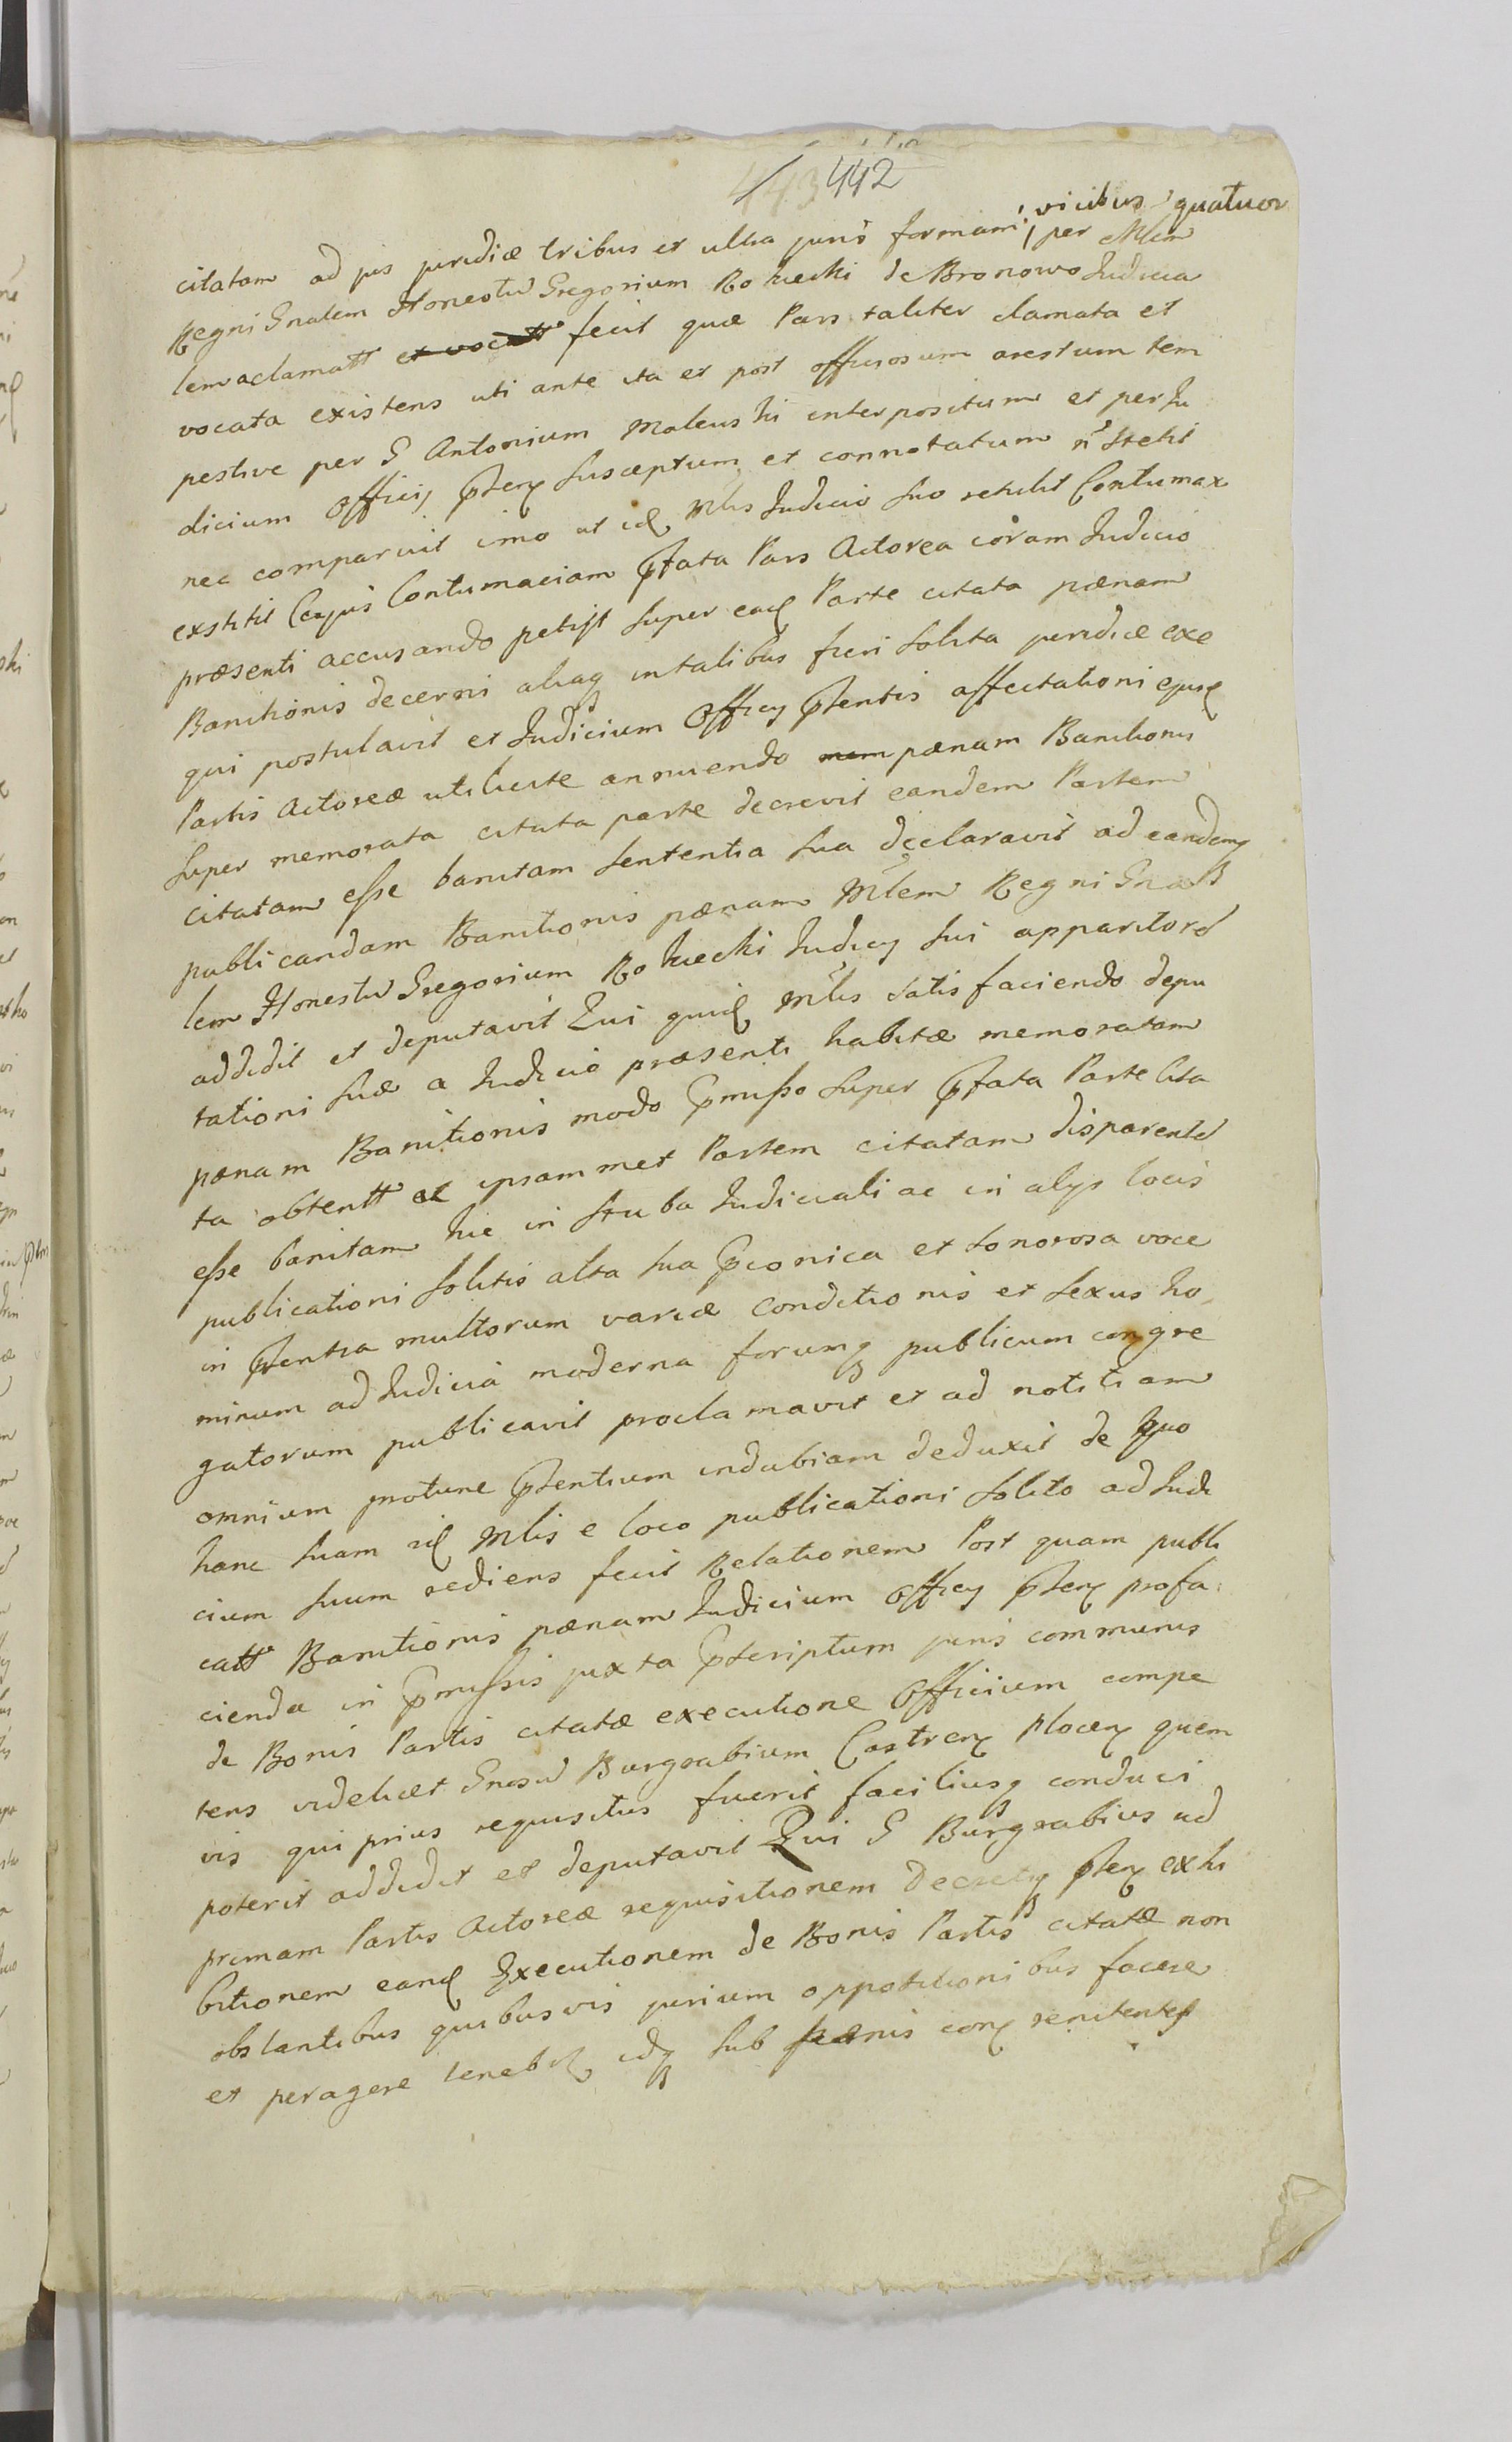 443 442
vicibus quatuor
citatam ad jus juridice tribus et ultra juris formam per Mlem
Regni Gnalem Honestũ Gregorium Rokicki de Bronowo Judicia
lem aclamatt et vocatt fecit quæ Pars taliter clamata et
vocata existens uti ante ita et post officiosum arestum tem
pestive per G Antonium Maleuski interpositum et per Ju
dicium Officij pñs susceptum et connotatum ñ stetit
nec comparuit imo ut id Mlis Judicio suo retulit Contumax
exstitit Cujus Contumaciam pfata Pars Actorea coram Judicio
præsenti accusando petijt super ead Parte citata pænam
Banitionis decerni aliaq in talibus fieri solita juridice exe
qui postulavit et Judicium Officij pñtis affectationi ejusd
Partis Actoreæ uti juste annuendo nem pænam Banitionis
super memorata citata parte decrevit eandem Partem
citatam esse banitam sententia sua declaravit ad eandemq
publicandam Banitionis pænam Mlem Regni Gna
lem Honestũ Gregorium Rokicki Judicij sui apparitorẽ
addidit et deputavit Qui quid Mlis satisfaciendo depu
tationi suæ a Judicio præsenti habitæ memoratam
pænam Banitionis modo pmisso super pfata Parte Cita
ta obtentt et ipsammet Partem citatam disparentẽ
esse banitam hic in stuba Judiciali ac in alijs locis
publicationi solitis alta sua pconica et sonorosa voce
in pñtia multorum variæ conditionis et sexus ho
minum ad Judicia moderna forumq publicum congre
gatorum publicavit proclamavit et ad notitiam
omnium protunc pñtium indubiam deduxit de quo
hanc suam id Mlis e loco publicationi solito ad Judi
cium suum rediens fecit Relationem Post quam publi
catt Banitionis pænam Judicium Officij pñs pro fa
cienda in pmissis juxta pscriptum juris communis
de Bonis Partis citatæ executione Officium compe
tens videlicet Gnosũ Burgrabium Castren Plocen quem
vis qui prius requisitus fuerit faciliusq conduci
poterit addidit et deputavit Qui G Burgrabius ad
primam Partis Actoreæ requisitionem Decretiq pñs exhi
bitionem eand Executionem de Bonis Partis citatæ non
obstantibus quibusvis jurium oppositionibus facere
et peragere tenebit idq sub pænis con renitentes